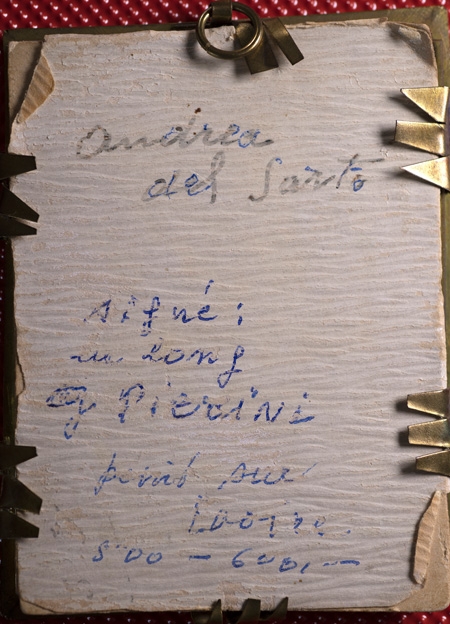 Andrea
del Sarto
signé:
au long
G Pierini
peint sur
Ivoire.
500 – 600,–